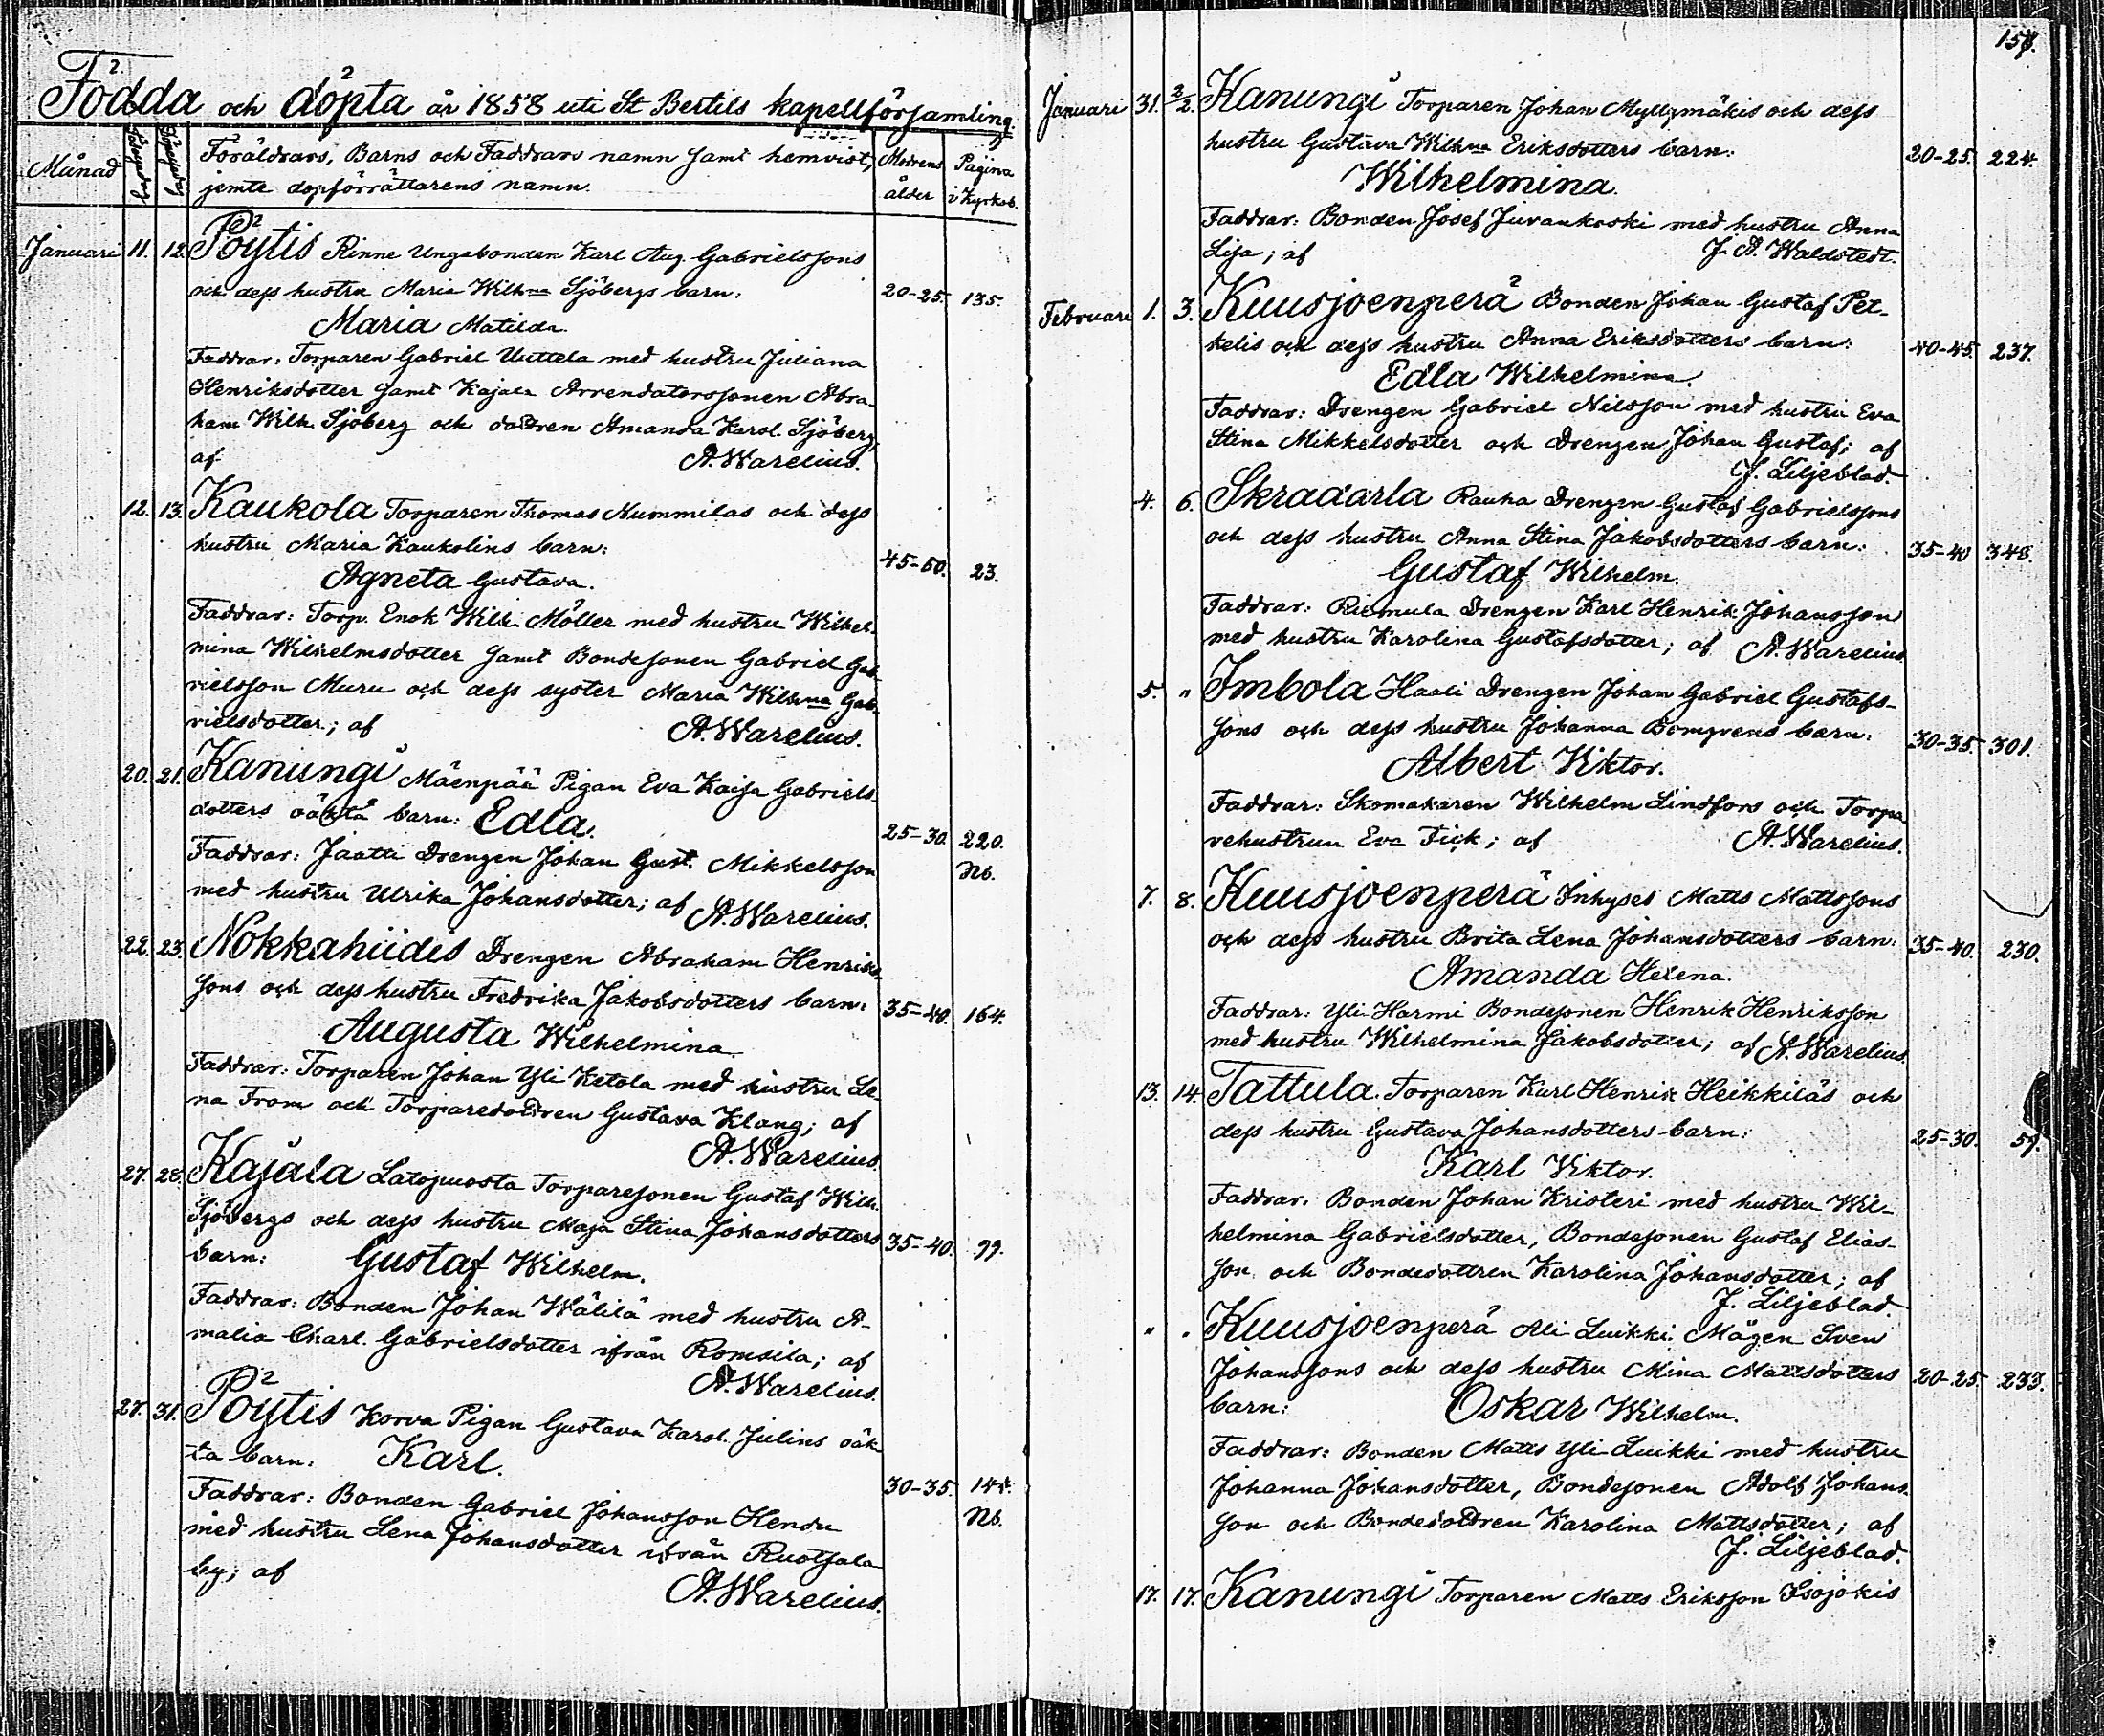 Födda och döpta år 1858 uti St Bertils kapellförsamling.
Månad Födelsedag Döpelsedag Föräldrars, Barns och Faddrars namn samt hemvist, jemte dopförrättarens namn. Modrens ålder Pagina i Kyrkob.
Januari 11. 12. Pöytis Rinne Ungabonden Karl Aug. Gabrielssons
och dess hustru Maria Wilhna Sjöbergs barn: 20-25. 135.
Maria Matilda.
Faddrar: Torparen Gabriel Uuttela med hustru Juliana
Henriksdotter samt Kajala Arrendatorssonen Abra-
ham Wilh. Sjöberg och dottren Amanda Karol. Sjöberg;
af A. Warelius.
12. 13. Kaukola Torparen Thomas Nummilas och dess
hustru Maria Kaukolins barn: 45-50. 23.
Agneta Gustava.
Faddrar: Torp. Enok Wilh. Möller med hustru Wilhel-
mina Wilhelmsdotter samt Bondesonen Gabriel Gab-
rielsson Muru och dess syster Maria Wilhna Gab-
rielsdotter; af A. Warelius.
20. 21. Kanungi Mäenpää Pigan Eva Kaisa Gabriels-
dotters oäkta barn: Edla. 25-30. 220.
Faddrar: Jaatti Drengen Johan Gust. Mikkelsson Nb.
med hustru Ulrika Johansdotter; af A. Warelius.
22. 23. Nokkahiidis Drengen Abraham Henriks-
sons och dess hustru Fredrika Jakobsdotters barn: 35-40. 164.
Augusta Wilhelmina.
Faddrar: Torparen Johan Yli Ketola med hustru Le-
na From och Torparedottren Gustava Klang; af
A. Warelius.
27. 28. Kajala Latojuosta Torparesonen Gustaf Wilh.
Sjöbergs och dess hustru Maja Stina Johansdotters 35-40. 99.
barn: Gustaf Wilhelm.
Faddrar: Bonden Johan Wälilä med hustru A-
malia Charl. Gabrielsdotter ifrån Romsila; af
A. Warelius.
27. 31. Pöytis Korva Pigan Gustava Karol. Julins oäk-
ta barn: Karl. 30-35. 144.
Faddrar: Bonden Gabriel Johansson Hensu Nb.
med hustru Lena Johansdotter ifrån Ruotsala
by; af A. Warelius.
157.
Januari 31. 2/2. Kanungi Torparen Johan Myllymäkis och dess
hustru Gustava Wilhna Eriksdotters barn: 20-25. 224.
Wilhelmina.
Faddrar: Bonden Josef Juvankoski med hustru Anna
Lisa; af J. A. Waldstedt.
Februari 1. 3. Kuusjoenperä Bonden Johan Gustaf Pet-
kelis och dess hustru Anna Eriksdotters barn: 40-45. 237.
Edla Wilhelmina.
Faddrar: Drengen Gabriel Nilsson med hustru Eva
Stina Mikkelsdotter och Drengen Johan Gustaf; af
J. Liljeblad.
4. 6. Skradarla Rauha Drengen Gustaf Gabrielssons
och dess hustru Anna Stina Jakobsdotters barn: 35-40 348.
Gustaf Wilhelm.
Faddrar: Riemula Drengen Karl Henrik Johansson
med hustru Karolina Gustafsdotter; af A. Warelius.
5. " Imbola Haali Drengen Johan Gabriel Gustafs-
sons och dess hustru Johanna Bomgrens barn: 30-35. 301.
Albert Viktor.
Faddrar: Skomakaren Wilhelm Lindfors och Torpa-
rehustrun Eva Fick; af A. Warelius.
7. 8. Kuusjoenperä Inhyses Matts Mattssons
och dess hustru Brita Lena Johansdotters barn: 35-40. 230.
Amanda Helena.
Faddrar: Yli-Harmi Bondesonen Henrik Henriksson
med hustru Wilhelmina Jakobsdotter; af A. Warelius.
13. 14. Tattula. Torparen Karl Henrik Heikkiläs och
dess hustru Gustava Johansdotters barn: 25-30. 59.
Karl Viktor.
Faddrar: Bonden Johan Kristeri med hustru Wil-
helmina Gabrielsdotter, Bondesonen Gustaf Elias-
son och Bondedottren Karolina Johansdotter; af
J. Liljeblad.
" " Kuusjoenperä Ali Luikki Mågen Sven
Johanssons och dess hustru Mina Mattsdotters 20-25. 233.
barn: Oskar Wilhelm.
Faddrar: Bonden Matts Yli-Luikki med hustru
Johanna Johansdotter, Bondesonen Adolf Johans-
son och Bondedottren Karolina Mattsdotter; af
J. Liljeblad.
17. 17. Kanungi Torparen Matts Eriksson Isojokis